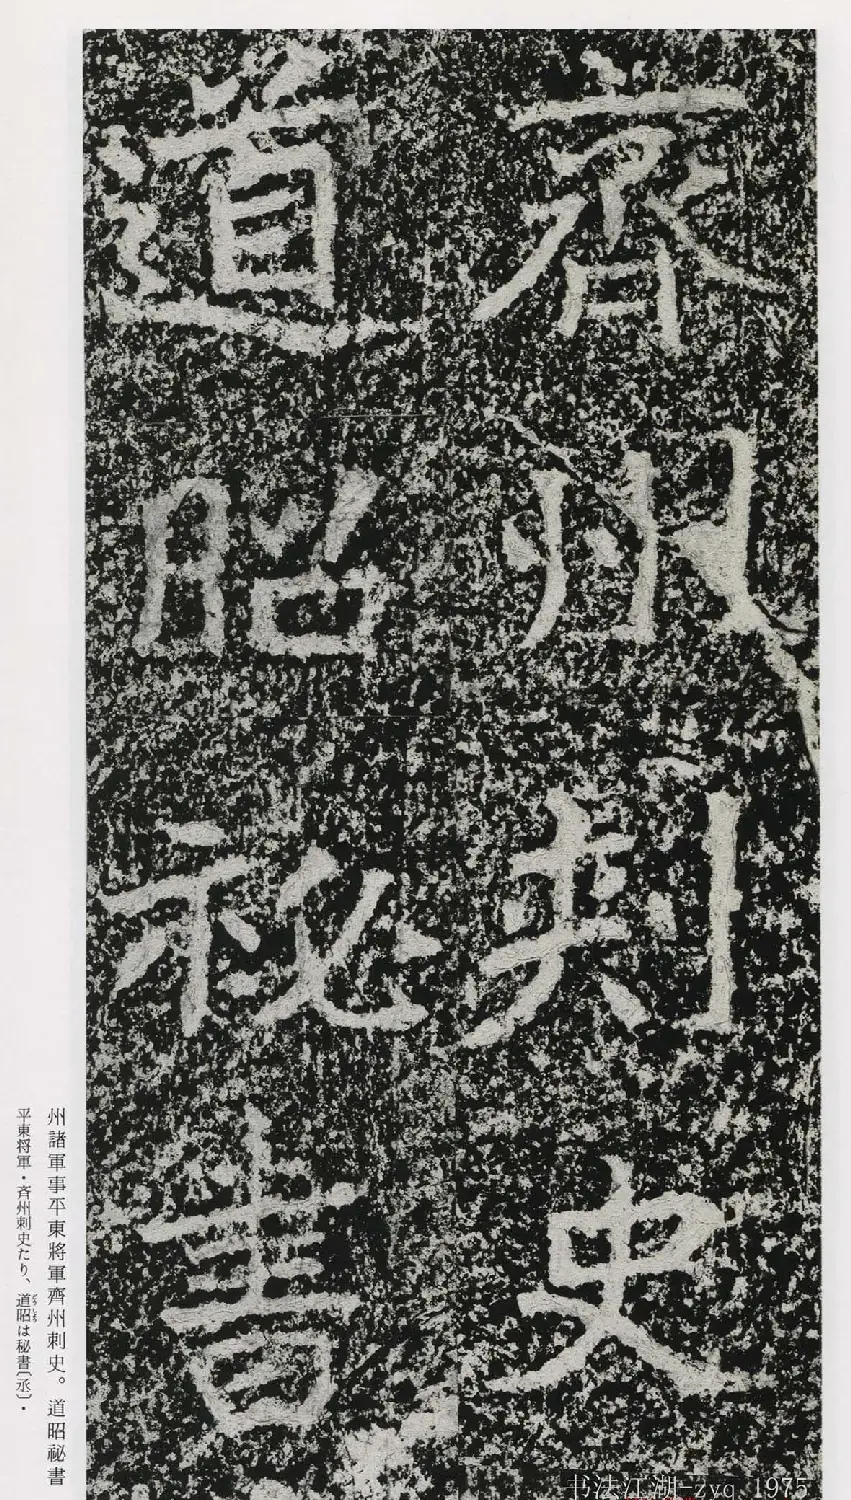 齊州刺史
道昭祕書
州諸軍事平東將軍齊州刺史。道昭祕書
平東将軍・斉州刺史たり、道昭は秘書〔丞〕・
どうしよう
书法江湖-zyq_1975